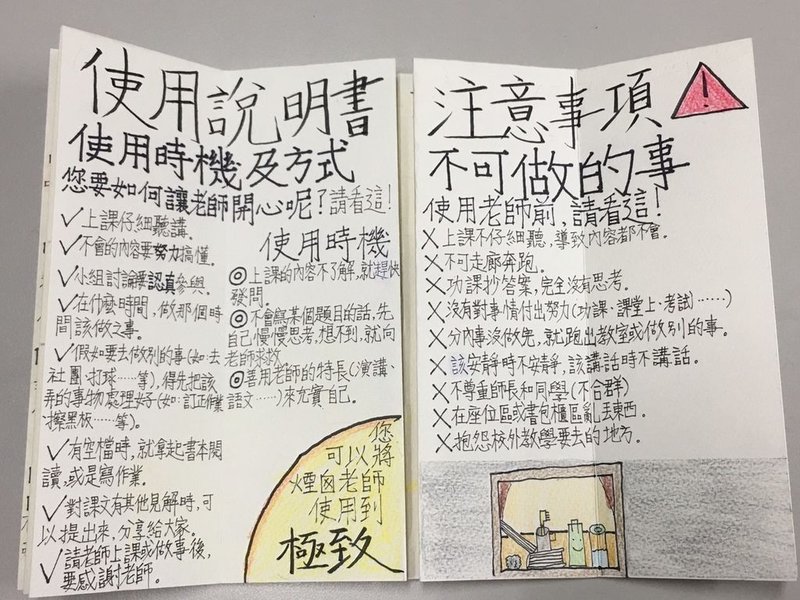 使用說明書
使用時機及方式
您要如何讓老師開心呢？請看這！
✓上課仔細聽講。
✓不會的內容要努力搞懂。
✓小組討論要認真參與。
✓在什麼時間，做那個時
間該做之事。
✓假如要去做別的事(如：去
社團、打球……等)，得先把該
弄的事物處理好(如：訂正作業
、擦黑板……等)。
✓有空檔時，就拿起書本閱
讀，或是寫作業。
✓對課文有其他見解時，可
以提出來，分享給大家。
✓請老師上課或做事後，
要感謝老師。
使用時機
◎上課的內容不了解，就趕快
發問。
◎不會寫某個題目的話，先
自己慢慢思考，想不到，就向
老師求救
◎善用老師的特長(演講、
語文……)來充實自己。
您
可以將
煙囪老師
使用到
極致
注意事項
!
不可做的事
使用老師前，請看這！
✗上課不仔細聽，導致內容都不會。
✗不可走廊奔跑。
✗功課抄答案，完全沒有思考。
✗沒有對事情付出努力(功課、課堂上、考試……)
✗分內事沒做完，就跑出教室或做別的事。
✗該安靜時不安靜，該講話時不講話。
✗不尊重師長和同學(不合群)
✗在座位區或書包櫃區亂丟東西。
✗抱怨校外教學要去的地方。